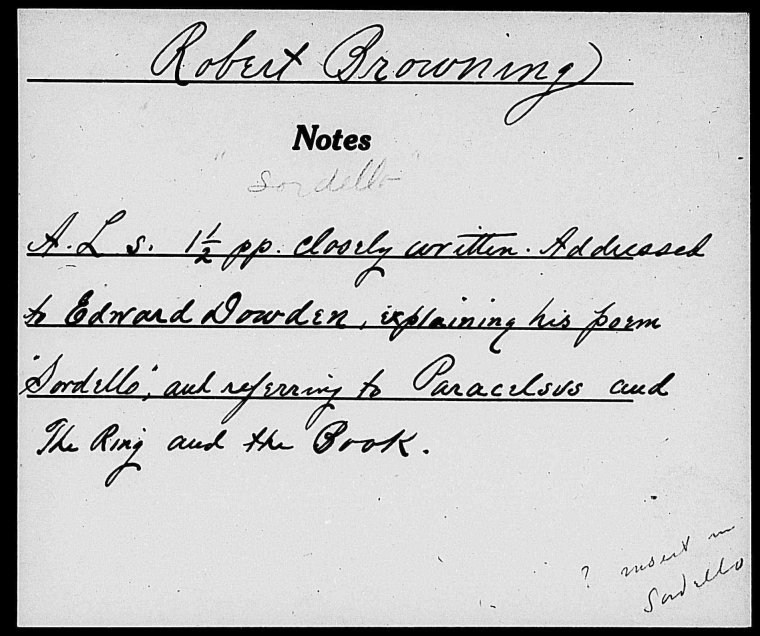 Robert Browning
Notes
"Sordello"
A. L. s. 1½ pp. closely written. Addressed
to Edward Dowden, explaining his poem
"Sordello", and referring to Paracelsus and
The Ring and the Book.
? insert in
Sordello